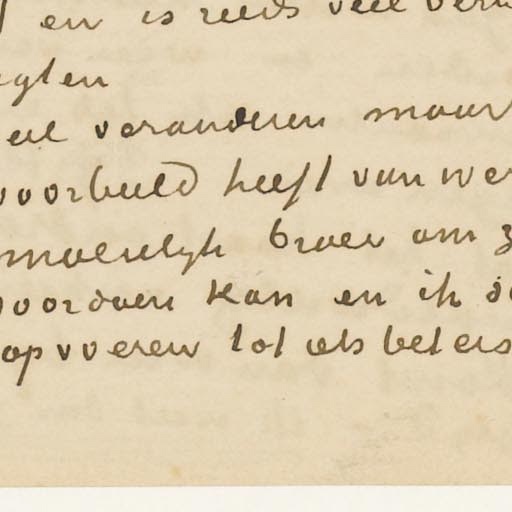 en is reeds veel
eel veranderen maar
voorbeeld heeft van
moeielijk broer om
voordoen kan en ik
opvoeren tot iets beters